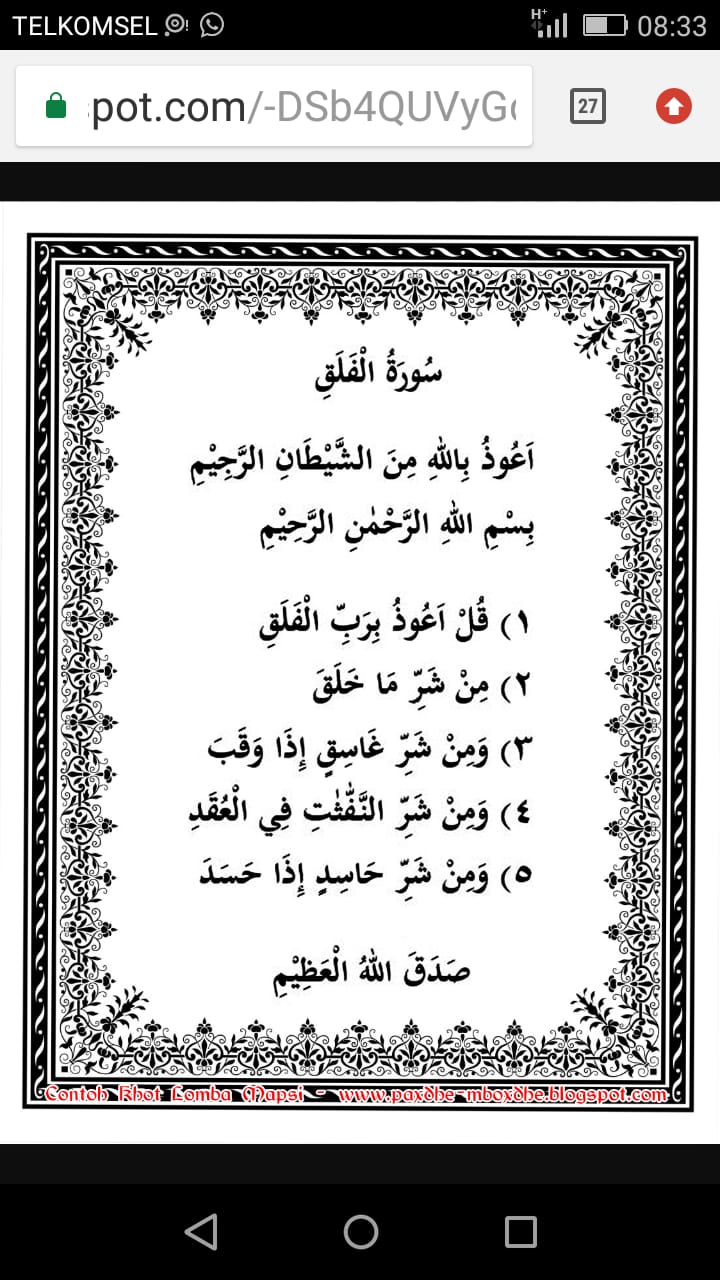 TELKOMSEL
H+
08:33
pot.com/-DSb4QUVyG
27
سُورَةُ الْفَلَقِ
اَعُوذُ بِاللهِ مِنَ الشَّيْطَانِ الرَّجِيْمِ
بِسْمِ اللهِ الرَّحْمٰنِ الرَّحِيْمِ
١) قُلْ اَعُوذُ بِرَبِّ الْفَلَقِ
٢) مِنْ شَرِّ مَا خَلَقَ
٣) وَمِنْ شَرِّ غَاسِقٍ إِذَا وَقَبَ
٤) وَمِنْ شَرِّ النَّفّٰثٰتِ فِي الْعُقَدِ
٥) وَمِنْ شَرِّ حَاسِدٍ إِذَا حَسَدَ
صَدَقَ اللهُ الْعَظِيْمِ
Contoh Khot Lomba Mapsi - www.paxdhe-mboxdhe.blogspot.com